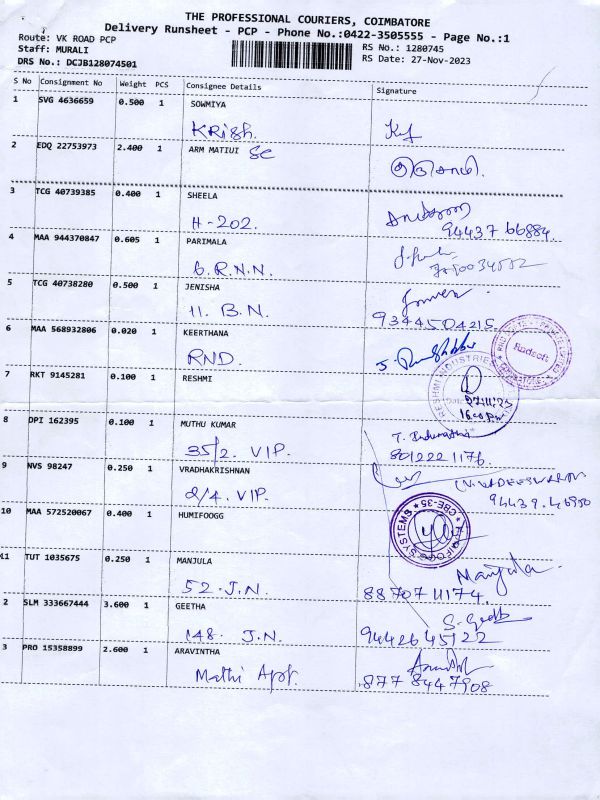 THE PROFESSIONAL COURIERS, COIMBATORE
Delivery Runsheet - PCP - Phone No.:0422-3505555 - Page No.:1
Route: VK ROAD PCP RS No.: 1280745
Staff: MURALI RS Date: 27-Nov-2023
DRS No.: DCJB128074501
S No Consignment No Weight PCS Consignee Details Signature
1 SVG 4636659 0.500 1 SOWMIYA
KRish.
2 EDQ 22753973 2.400 1 ARM MATIUI SC
3 TCG 40739385 0.400 1 SHEELA
H-202. 94437 66884.
4 MAA 944370847 0.605 1 PARIMALA
6.R.N.N.
5 TCG 40738280 0.500 1 JENISHA
11. B.N. 9344504215
6 MAA 568932806 0.020 1 KEERTHANA
RND.
Rndsoft
7 RKT 9145281 0.100 1 RESHMI
RESHMI INDUSTRIES
Date: 27.11.23
8 DPI 162395 0.100 1 MUTHU KUMAR
35/2. VIP. 801222 1176
9 NVS 98247 0.250 1 VRADHAKRISHNAN
2/4. VIP. 94439.46950
10 MAA 572520067 0.400 1 HUMIFOOGG
HUMIFOGG SYSTEMS * CBE-35 *
11 TUT 1035675 0.250 1 MANJULA Manjula
52.J.N. 887071174.
2 SLM 333667444 3.600 1 GEETHA S. Geetha
148. J.N. 9442645122
3 PRO 15358899 2.600 1 ARAVINTHA
Mathi Apt. 877 8447908